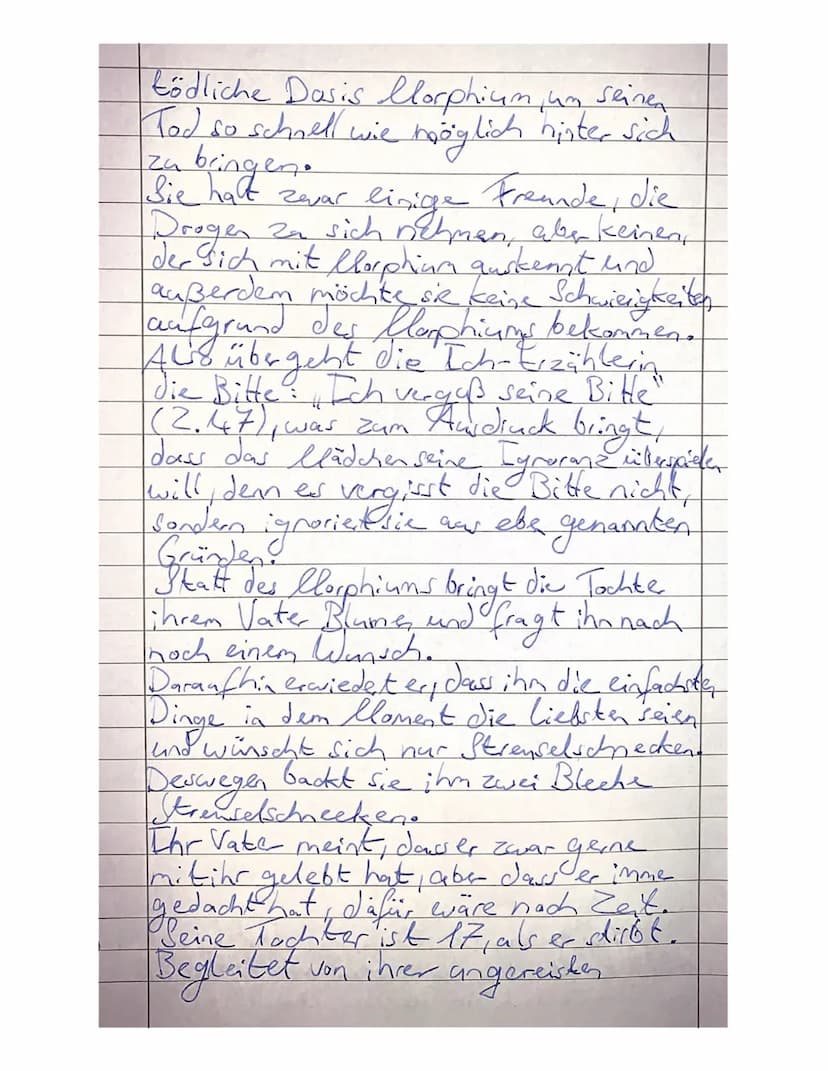 tödliche Dosis Morphium, um seinen
Tod so schnell wie möglich hinter sich
zu bringen.
Sie hat zwar einige Freunde, die
Drogen zu sich nehmen, aber keinen,
der sich mit Morphium auskennt und
außerdem möchte sie keine Schwierigkeiten
aufgrund des Morphiums bekommen.
Also übergeht die Ich-Erzählerin
die Bitte: „Ich vergaß seine Bitte"
(Z.47), was zum Ausdruck bringt,
dass das Mädchen seine Ignoranz überspielen
will, denn es vergisst die Bitte nicht,
sondern ignoriert sie aus ebe genannten
Gründen.
Statt des Morphiums bringt die Tochter
ihrem Vater Blumen und fragt ihn nach
noch einem Wunsch.
Daraufhin erwiedet er, dass ihm die einfachsten
Dinge in dem Moment die liebsten seien
und wünscht sich nur Streuselschnecken.
Deswegen backt sie ihm zwei Bleche
Streuselschnecken.
Ihr Vater meint, dass er zwar gerne
mit ihr gelebt hat, aber dass er imme
gedacht hat, dafür wäre noch Zeit.
Seine Tochter ist 17, als er stirbt.
Begleitet von ihrer angereisten